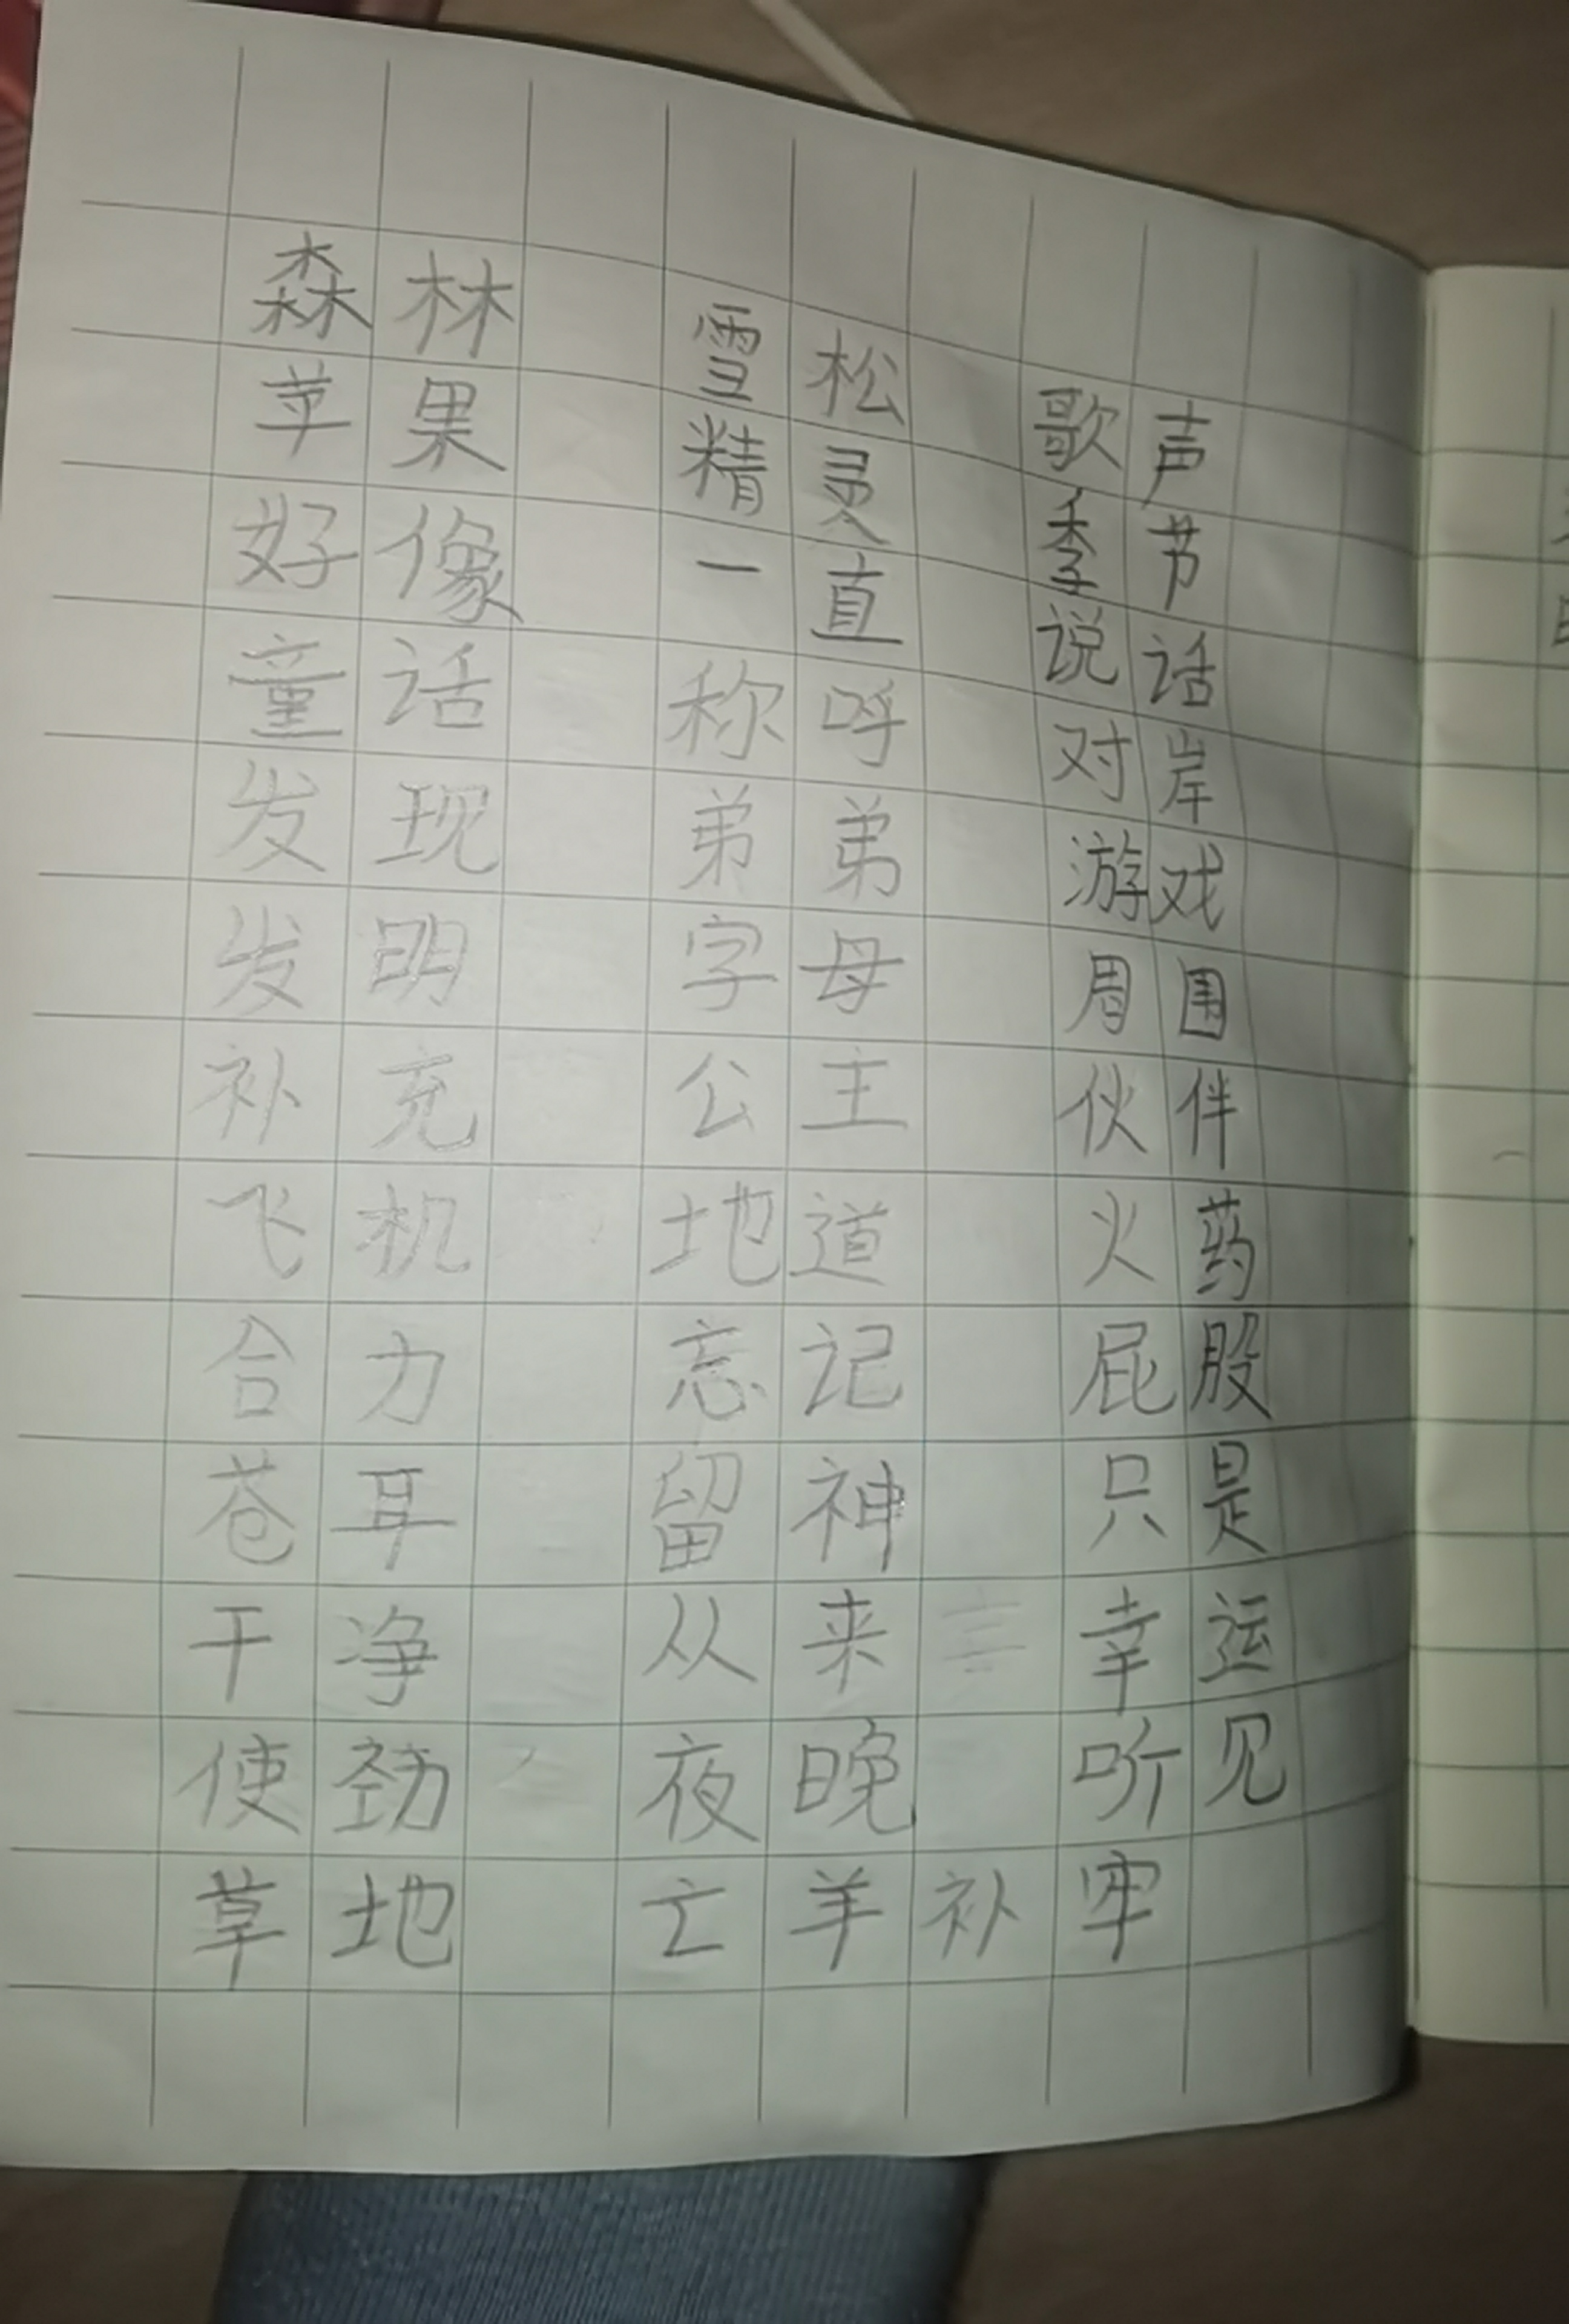 森林 雪松 歌声
苹果 精灵 季节
好像 一直 说话
童话 称呼 对岸
发现 弟弟 游戏
发明 字母 周围
补充 公主 伙伴
飞机 地道 火药
合力 忘记 屁股
苍耳 留神 只是
干净 从来 幸运
使劲 夜晚 听见
草地 亡羊补牢